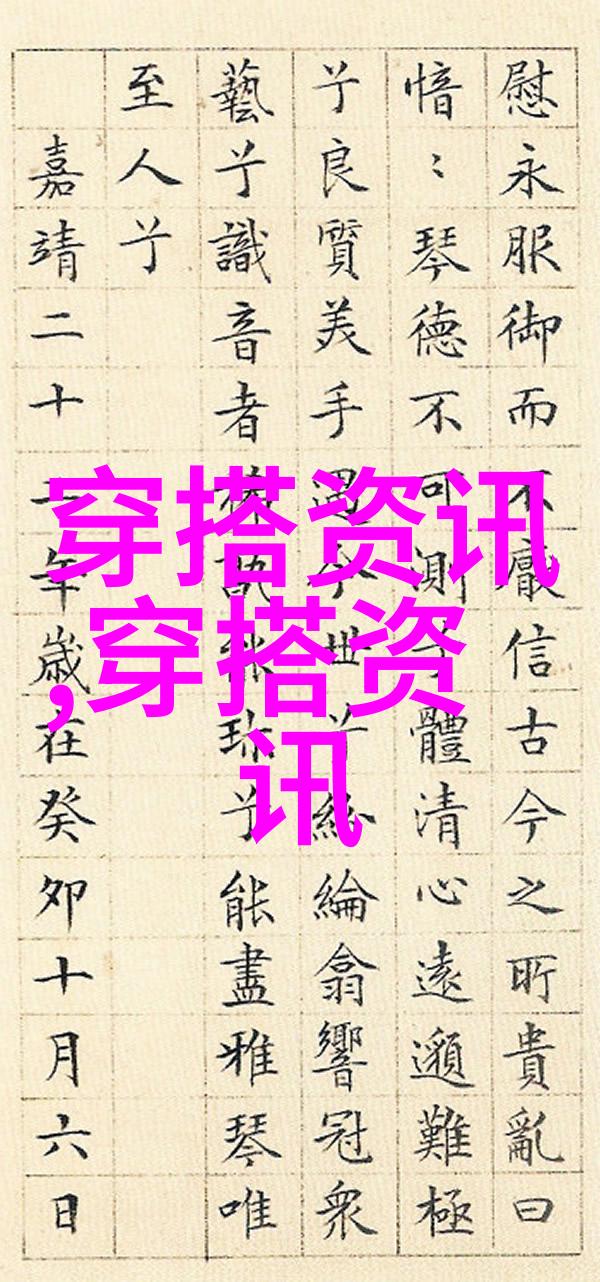 慰永服御而不厭信古今之所貴亂曰
愔〻琴德不可測兮體清心遠邈難極
兮良質美手遇今世兮紛綸翕響冠衆
藝兮識音者稀孰能珍兮能盡雅琴唯
至人兮
嘉靖二十二年歲在癸卯十月六日
穿搭资讯
,穿搭资
讯